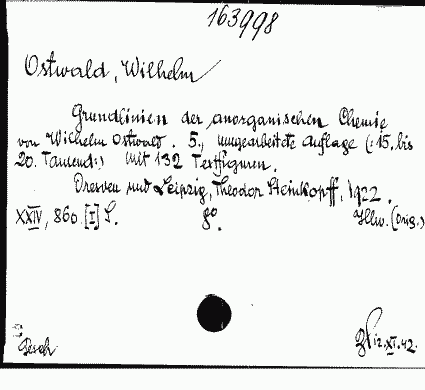 163998
Ostwald, Wilhelm
Grundlinien der anorganischen Chemie
von Wilhelm Ostwald. 5., umgearbeitete Auflage (:15. bis
20. Tausend:) Mit 132 Textfiguren.
Dresden und Leipzig, Theodor Steinkopff, 1922.
XXIV, 860 [1] S. 8o. Hlw. (Orig.)
Gesch
12.XI.42.